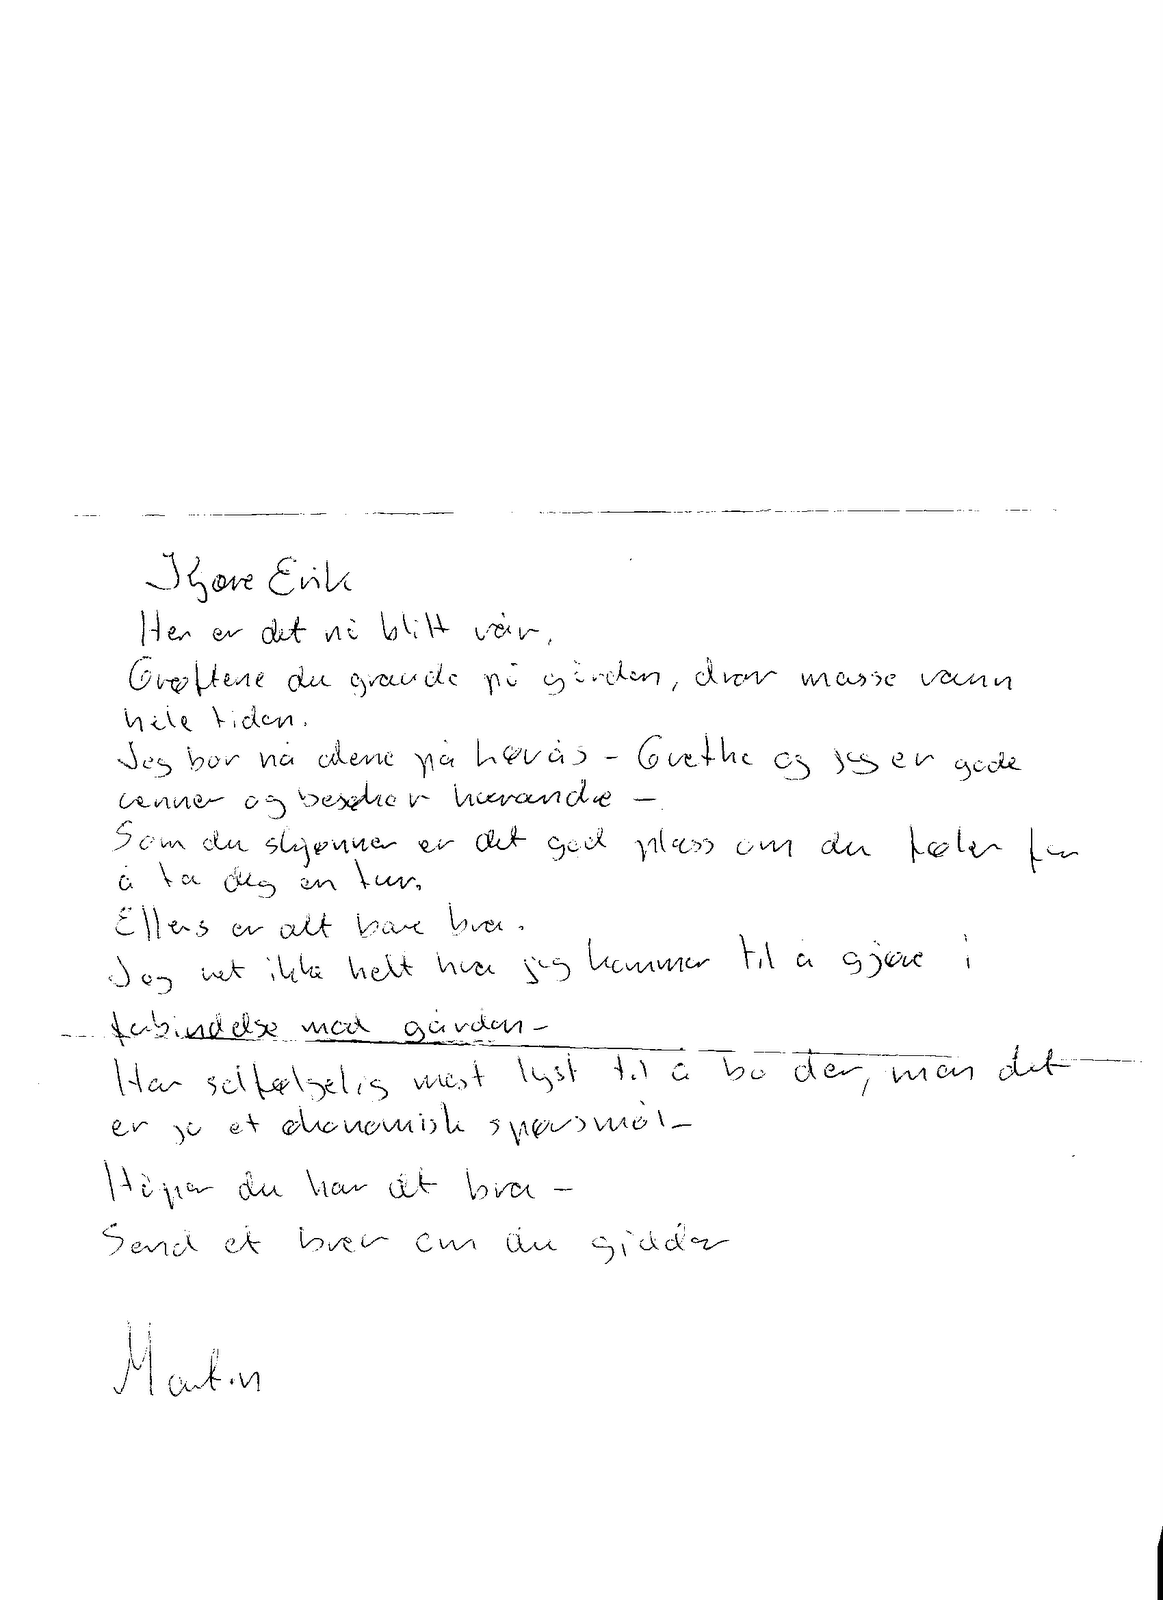 Kjære Erik
Her er det nå blitt vår.
Grøftene du gravde på gården, drar masse vann
hele tiden.
Jeg bor nå alene på Høvås - Grethe og jeg er gode
venner og besøker hverandre -
Som du skjønner er det god plass om du føler for
å ta deg en tur.
Ellers er alt bare bra.
Jeg vet ikke helt hva jeg kommer til å gjøre i
forbindelse med gården -
Har selfølgelig mest lyst til å bo der, men det
er jo et økonomisk spørsmål -
Håper du har det bra -
Send et brev om du gidder
Martin